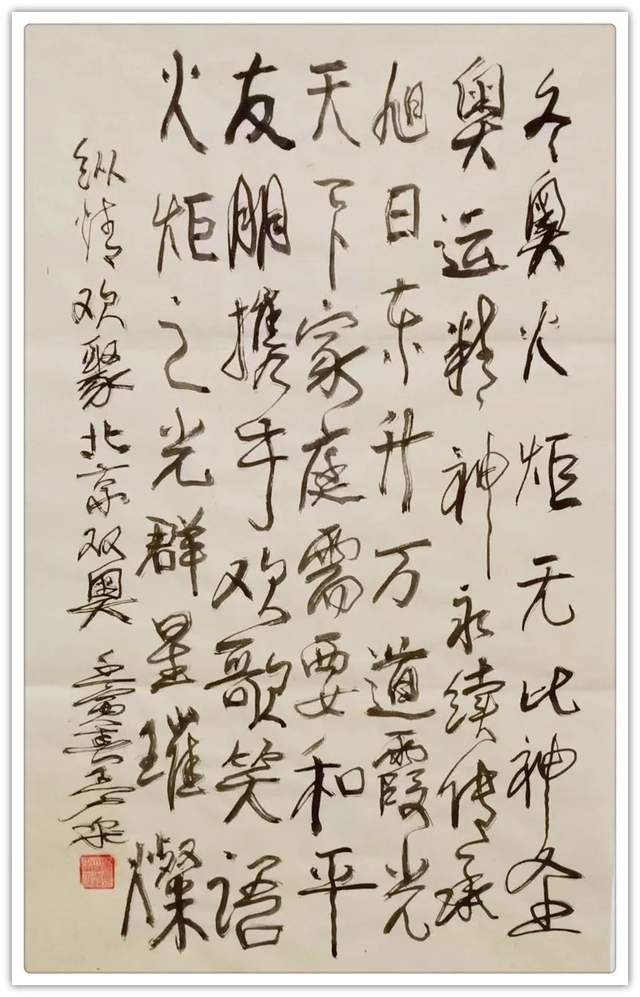 冬奥火炬无比神圣
奥运精神永续传承
旭日东升万道霞光
天下家庭需要和平
友朋携手欢歌笑语
火炬之光群星璀璨
纵情欢聚北京双奥